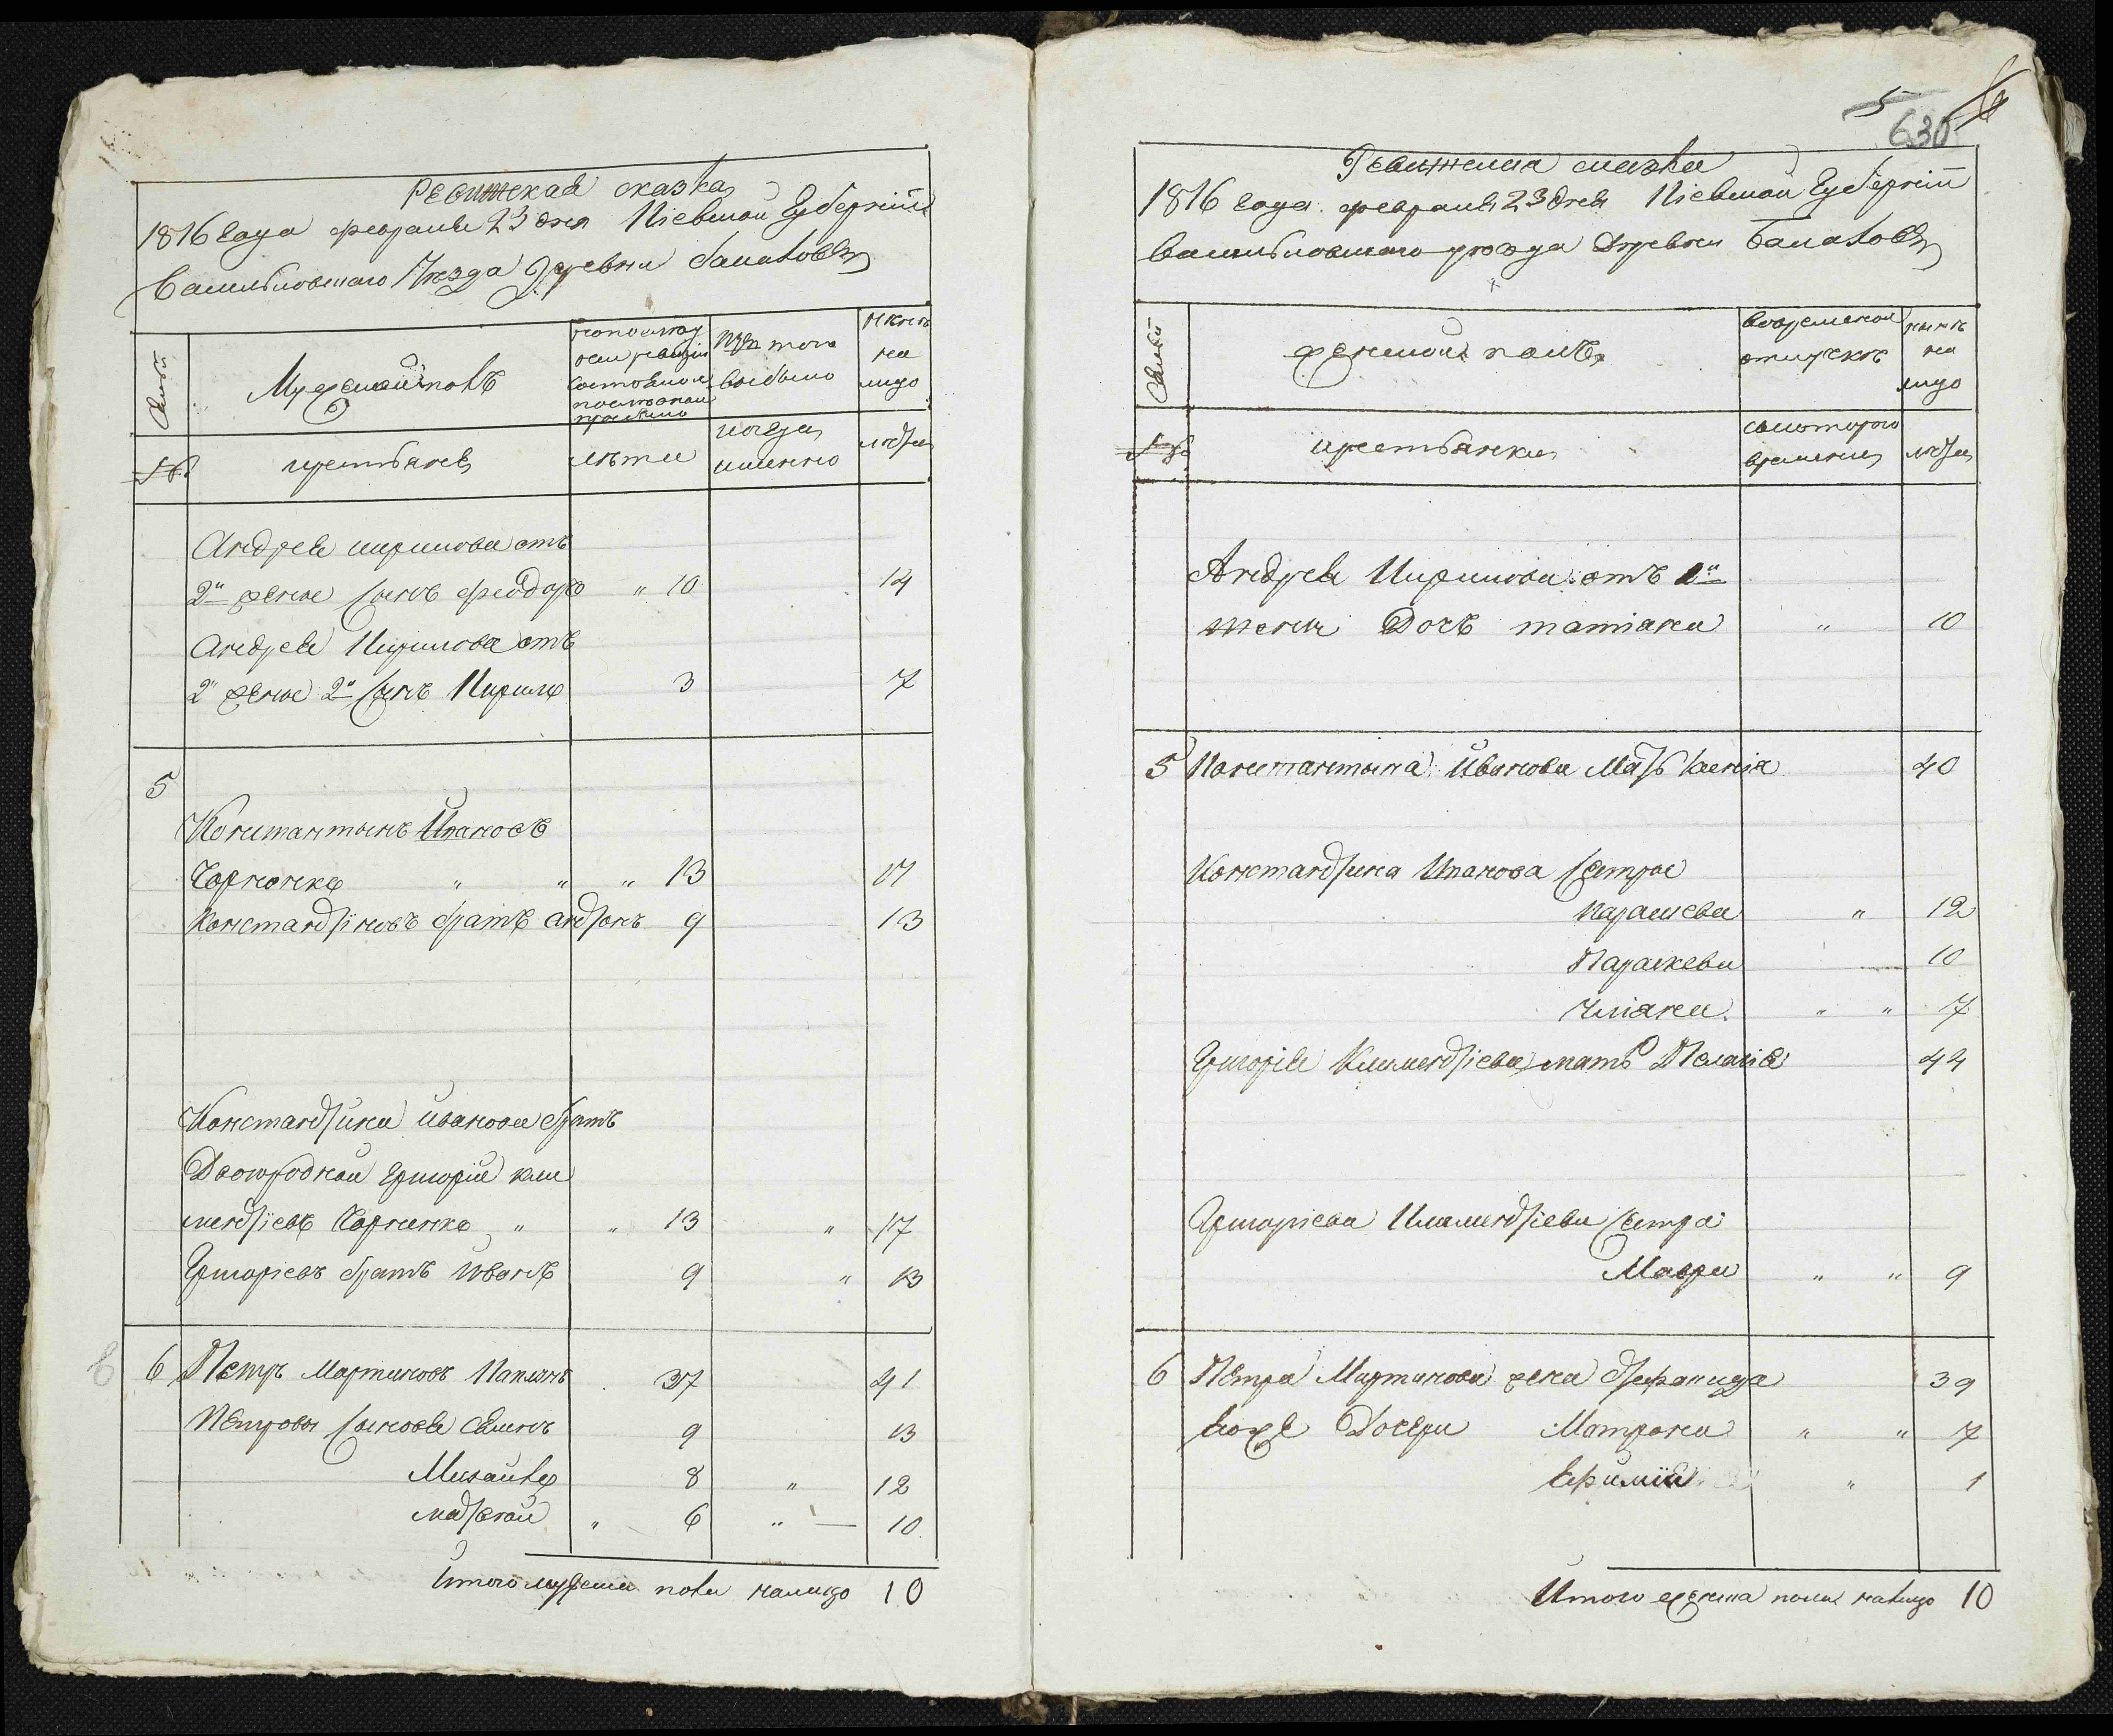 Ревижская сказка
1816 года февраля 23 дня Киевской Губернии
Васильковскаго Уезда Деревни
Мужеской полъ
изъ того выбыло
ныне на лицо
№
крестьяне
лета
когда именно
лета
Андрея Кирилова отъ
2й жены сынъ Феодоръ " 10 14
Андрея Кирилова отъ
2й жены 2й сынъ Кирило 3 7
5
Константынъ Ивановъ
Чорненко " " " 13 17
Константиновъ братъ Антонъ 9 13
Константина Иванова братъ
Двоюродной Григорій Кли
ментіевъ Чорненко " " 13 " 17
Григоріевъ братъ Иванъ 9 " 13
6 Петръ Мартиновъ 37 41
Петровы сыновья Семенъ 9 13
Михайло 8 " 12
Матвей " 6 " — 10
Итого мужеска пола налицо 10
5
630
Ревижская сказка
1816 года февраля 23 дня Киевской Губернии
Васильковскаго уезда Деревни
Женской полъ
во временной отлучке
ныне на лицо
№
крестьянки
съ котораго времени
лета
Андрея Кирилова отъ 2й
жени Дочь Татіана " 10
5 Константына Иванова Мать Ксенія 40
Константина Иванова сестры
Параскева " 12
Параскева 10
Уліана " " 7
Григорія Климентіева мать Пелагія 44
Григоріева Климентіева сестра
Мавра " " 9
6 Петра Мартинова жена 39
Егоже Дочери Матрона " " 7
Ефимія " 1
Итого женска пола налицо 10